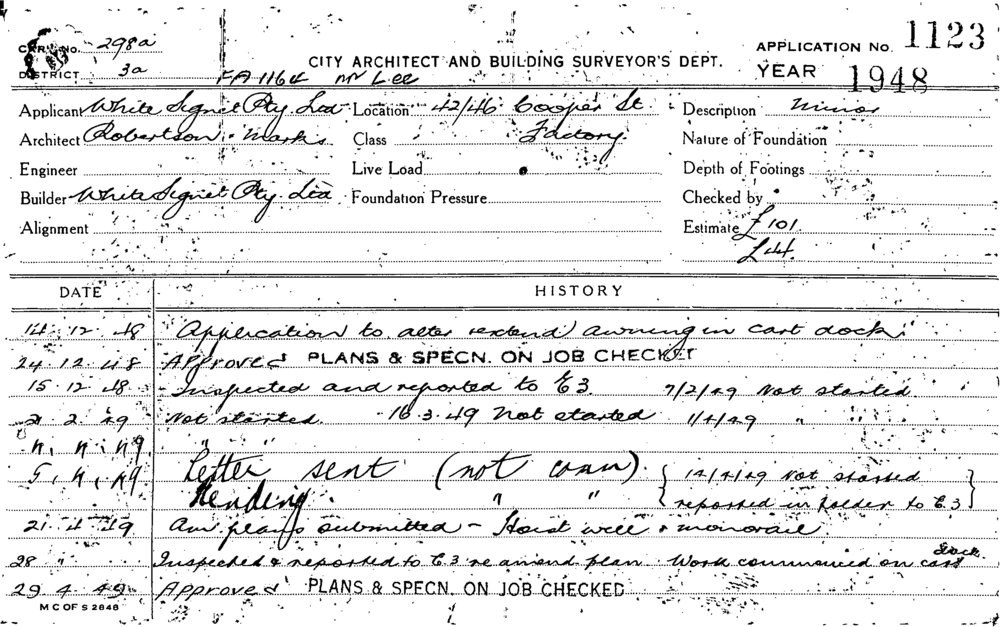 CARD NO. 298a
DISTRICT 3a
FA 1164 Mr Lee
CITY ARCHITECT AND BUILDING SURVEYOR'S DEPT.
APPLICATION NO. 1123
YEAR 1948
Applicant White Signet Pty. Ltd Location 42/46 Cooper St. Description Minor
Architect Robertson & Marks Class Factory Nature of Foundation
Engineer Live Load Depth of Footings
Builder White Signet Pty. Ltd Foundation Pressure Checked by
Alignment Estimate £ 101.
£44.
DATE HISTORY
14.12.48 Application to alter (extend) awning in cart dock.
24.12.48 Approved PLANS & SPECN. ON JOB CHECKED
15.12.48 Inspected and reported to E3. 7/2/49 Not started.
21.2.49 Not started. 16.3.49 Not started 1/4/49 " "
4.4.49 " "
5.4.49 Letter sent (not comm). { 14/4/49 Not started
Pending. " " reported in folder to E3 }
21.4.49 Am plans submitted – Hoist well & monorail
28 " Inspected & reported to E3 re amend plan Work commenced on cart dock
29.4.49 Approved PLANS & SPECN. ON JOB CHECKED
M C OF S 2848